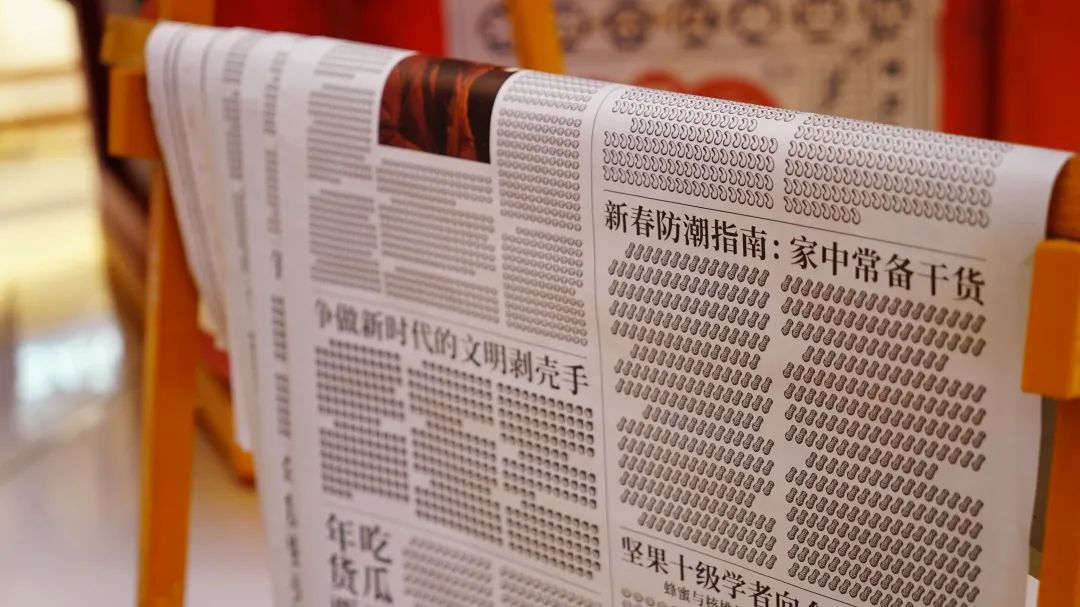 新春防潮指南：家中常备干货
争做新时代的文明剥壳手
坚果十级学者向
蜂蜜与核桃
吃瓜
年货